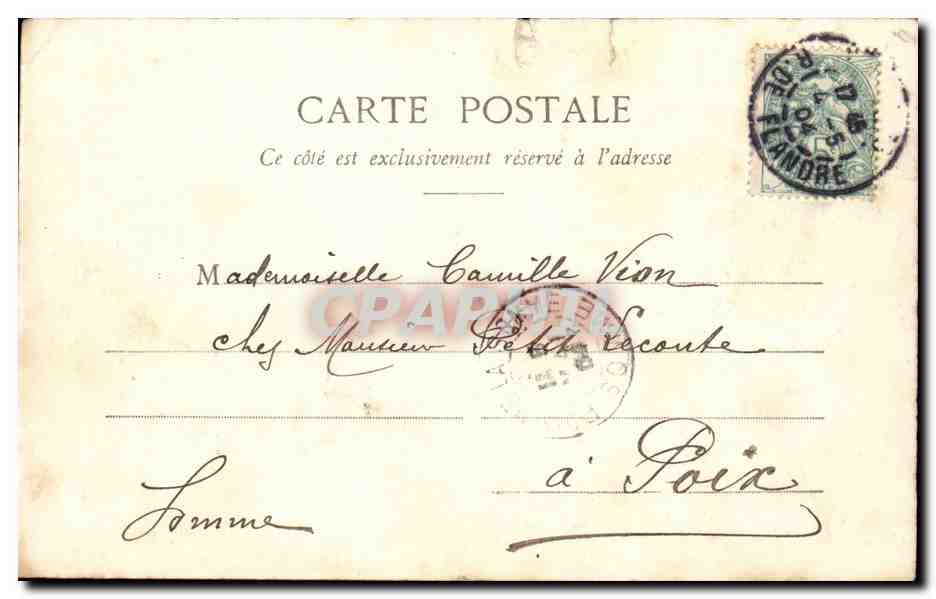 CARTE POSTALE
Ce côté est exclusivement réservé à l'adresse
R. DE FLANDRE
Mademoiselle Camille Vion
CPARAMA
chez Monsieur Petit Leconte
à Poix
Somme